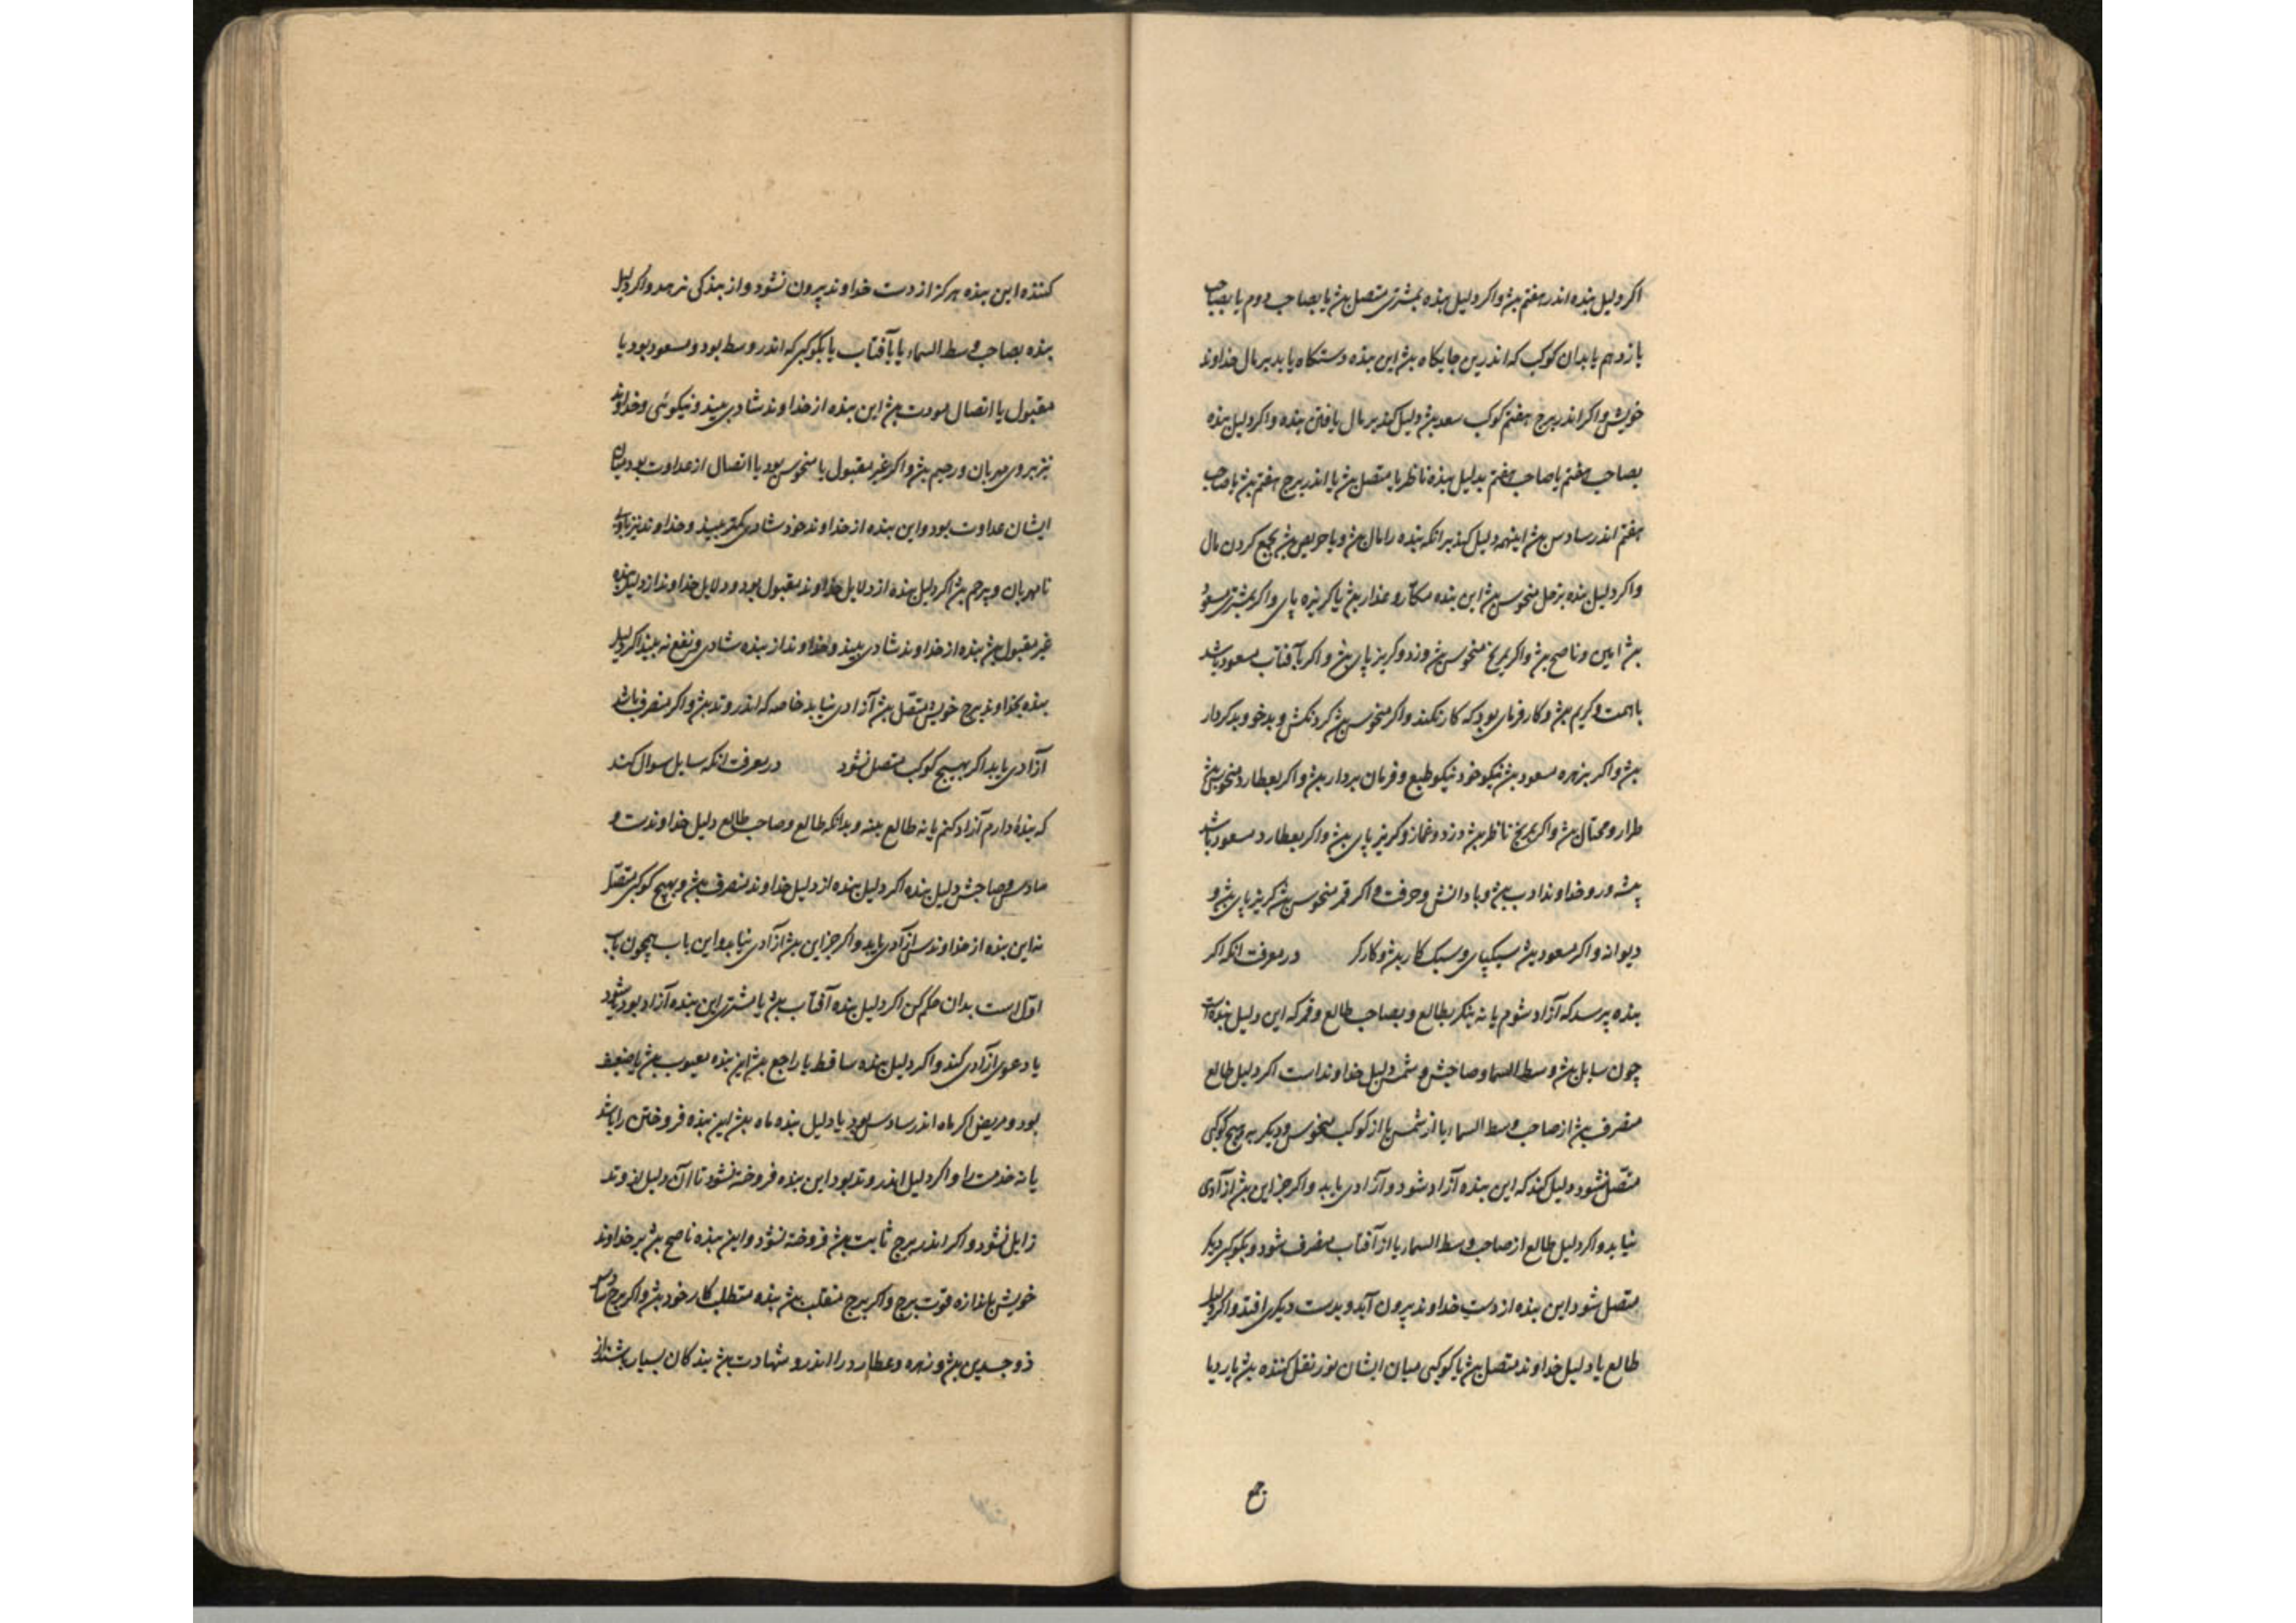 اکر دلیل بنده اندر هفتم بٯ واکر دلیل بنده بمشتری متصل بٯ یا بصاحب دوم یا بصاحب
یازدهم یا بدان کوکب که اندرین جایکاه بٯ این بنده دستکاه یابد بر مال خداوند
خویش واکر اندر برج هفتم کوکب سعد بٯ دلیل کند بر مال یافتن بنده واکر دلیل بنده
بصاحب هفتم یا صاحب هفتم بدلیل بنده ناظر یا متصل بٯ یا اندر برج هفتم بٯ یا صاحب
هفتم اندر سادس بٯ اینهمه دلیل کند برانکه بنده را مال بٯ و یا حریص بٯ بجمع کردن مال
واکر دلیل بنده بزحل منحوس بٯ این بنده مکار و غدار بٯ یا کریزه پای واکر بمشتری مسعود
بٯ امین و ناصح بٯ واکر بمریخ منحوس بٯ دزد و کریز پای بٯ واکر بآفتاب مسعود باشد
با همت و کریم بٯ و کارفرمای بود که کار نکند واکر منحوس بٯ کردنکش و بدخو و بدکردار
بٯ واکر بزهره مسعود بٯ نیکو خو و نیکو طبع و فرمان بردار بٯ واکر بعطارد منحوس بٯ
طرار و محتال بٯ واکر بمریخ ناظر بٯ دزد و غماز و کریز پای بٯ واکر بعطارد مسعود باشد
پیشه ور و خداوند ادب بٯ و با دانش و حرفت واکر قمر منحوس بٯ کریز پای بٯ و
دیوانه واکر مسعود بٯ سبکپای و سبک کار بٯ و کارکر در معرفت انکه اکر
بنده پرسد که آزاد شوم یا نه بنکر بطالع و بصاحب طالع و قمر که این دلیل بنده است
چون سایل بٯ وسط السما و صاحبش و شمس دلیل خداوند است اکر دلیل طالع
منصرف بٯ از صاحب وسط السماء یا از شمس یا از کوکب منحوس و دیکر بر هیچ کوکبی
متصل نشود دلیل کند که این بنده آزاد شود و آزادی یابد واکر جز این بٯ آزادی
نیابد واکر دلیل طالع از صاحب وسط السماء یا از آفتاب منصرف شود و بکوکبی دیکر
متصل شود این بنده از دست خداوند بیرون آید و بدست دیکری افتد واکر دلیل
طالع با دلیل خداوند متصل بٯ یا کوکبی میان ایشان نور نقل کننده بٯ یا رد یا
جمع
کننده این بنده هرکز از دست خداوند بیرون نشود و از بندکی نرهد واکر دلیل
بنده بصاحب وسط السماء یا بآفتاب یا بکوکبی که اندر وسط بود و مسعود بود یا
مقبول یا اتصال مودت بٯ این بنده از خداوند شادی بیند و نیکوئی و خداوند
نیز بروی مهربان و رحیم بٯ واکر غیر مقبول یا منحوس بود یا اتصال از عداوت بود میان
ایشان عداوت بود و این بنده از خداوند خود شادی کمتر بیند و خداوند نیز با وی
نامهربان و بیرحم بٯ اکر دلیل بنده از دلایل خداوند مقبول بود و دلایل خداوند از دلیل بنده
غیر مقبول بٯ بنده از خداوند شادی بیند و خداوند از بنده شادی و نفع نه بیند اکر دلیل
بنده بخداوند برج خویش متصل بٯ آزادی نیابد خاصه که اندر وتد بٯ واکر منصرف باشد
آزادی یابد اکر بهیچ کوکب متصل نشود در معرفت انکه سایل سوال کند
که بندۀ دارم آزاد کنم یا نه طالع بنه و بدانکه طالع و صاحب طالع دلیل خداوندست و
سادس و صاحبش دلیل بنده اکر دلیل بنده از دلیل خداوند منصرف بٯ و بهیچ کوکبی متصل
نه این بنده از خداوند آزادی یابد واکر جز این بٯ آزادی نیابد و این باب همچون باب
اول است بدان حکم کن اکر دلیل بنده آفتاب بٯ یا مشتری این بنده آزاد بود یا شود
یا دعوی آزادی کند واکر دلیل بنده ساقط یا راجع بٯ این بنده معیوب بٯ یا ضعیف
بود و مریض اکر ماه اندر سادس بود یا دلیل بنده ماه بٯ این بنده فروختن را باشد
یا نه خدمت را واکر دلیل اندر وتد بود این بنده فروخته نشود تا آن دلیل از وتد
زایل نشود واکر اندر برج ثابت بٯ فروخته نشود و این بنده ناصح بٯ بر خداوند
خویش باندازه قوت برج واکر برج منقلب بٯ بنده متطلب کار خود بٯ واکر برج
ذو جسدین بٯ و زهره و عطارد را اندر و شهادت بٯ بندکان بسیار باشند